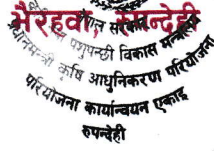 भैरहवा, रुपन्देही
पशुपन्छी विकास
प्रधानमन्त्री कृषि आधुनिकरण परियोजना
परियोजना कार्यान्वयन एकाइ
रुपन्देही